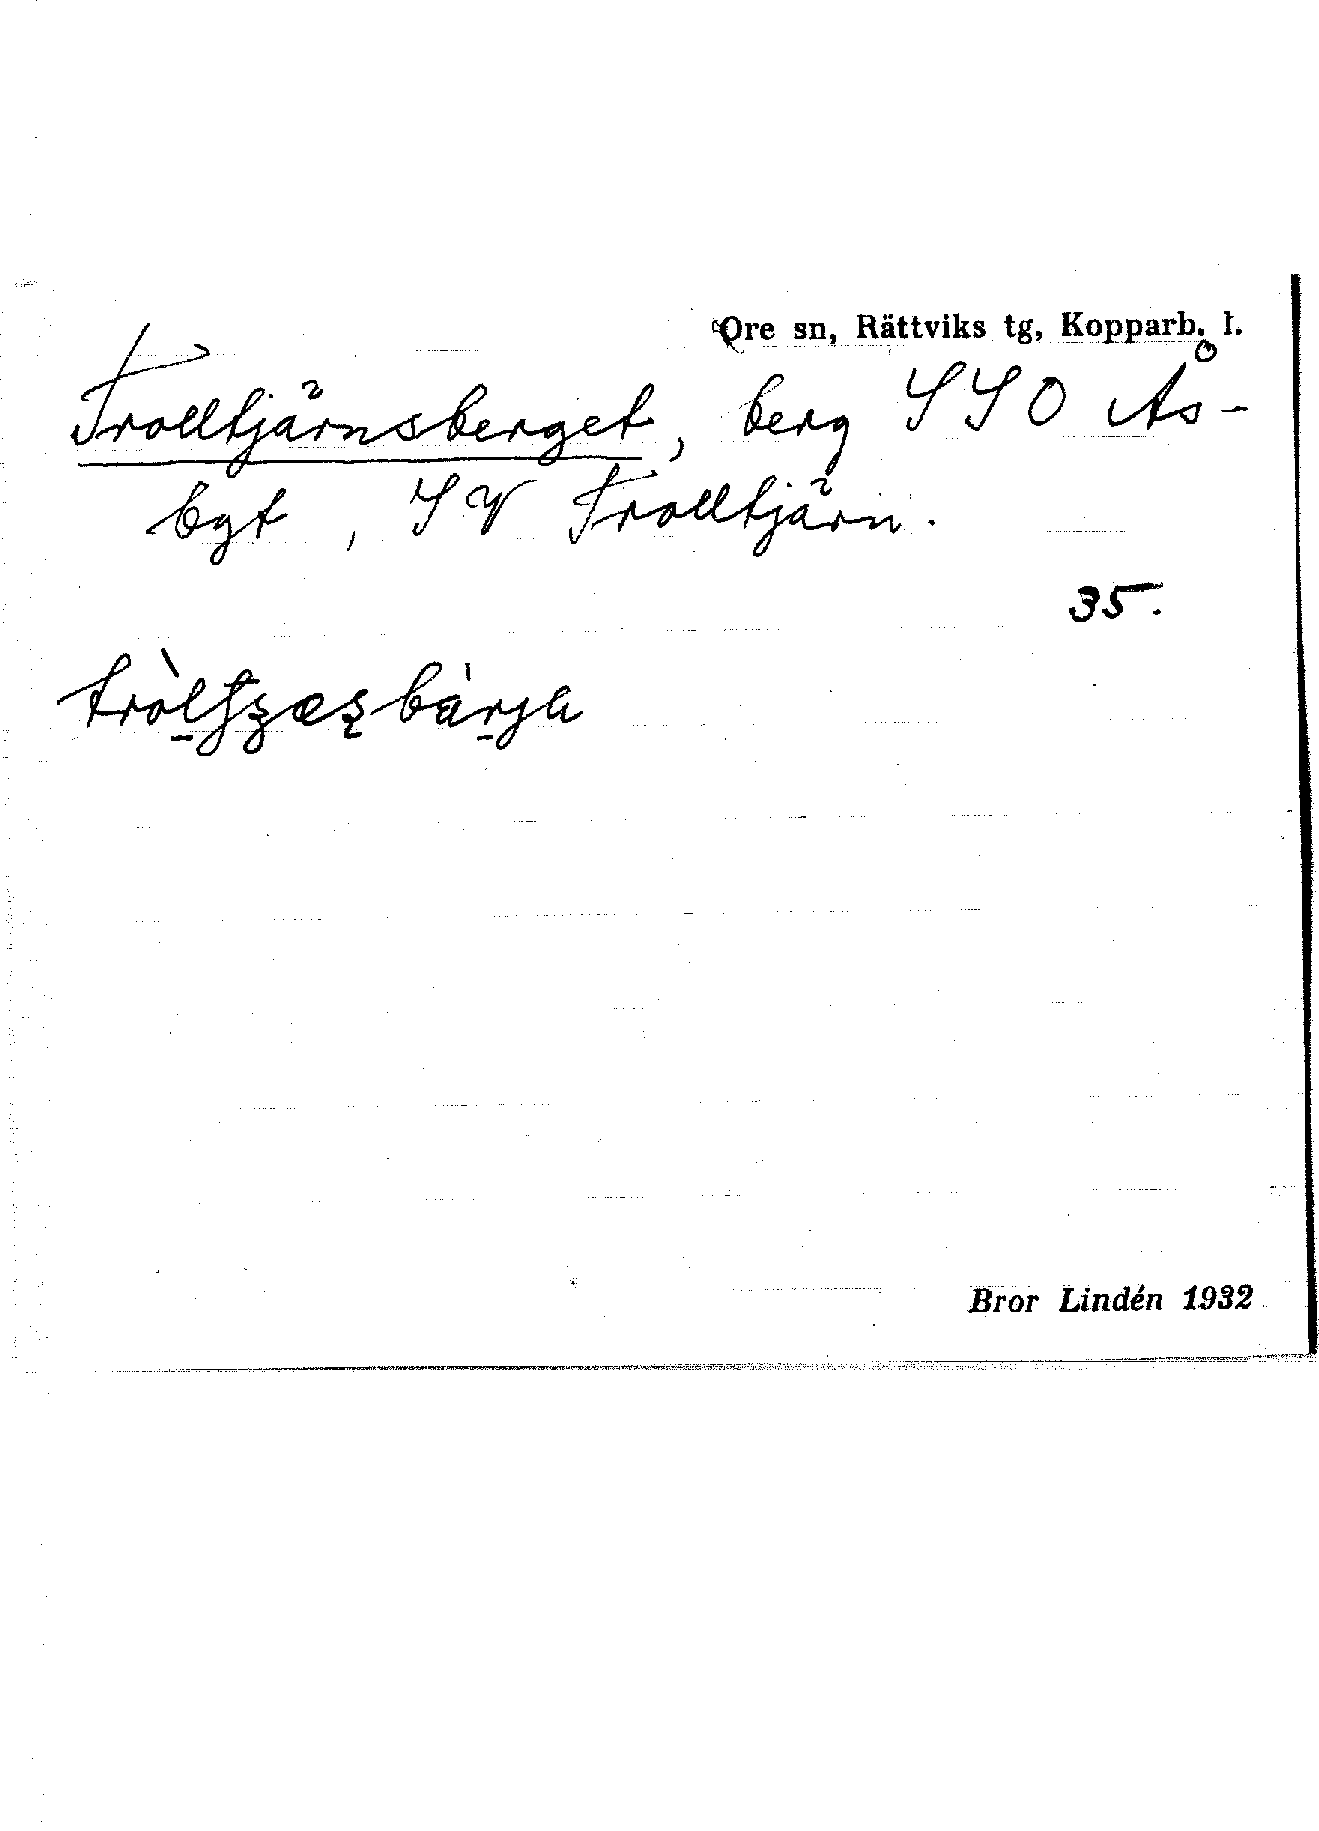 Ore sn, Rättviks tg, Kopparb. l.
Trolltjärnsberget, berg SSO Ås-
bgt, SV Trolltjärn.
35.
Bror Lindén 1932